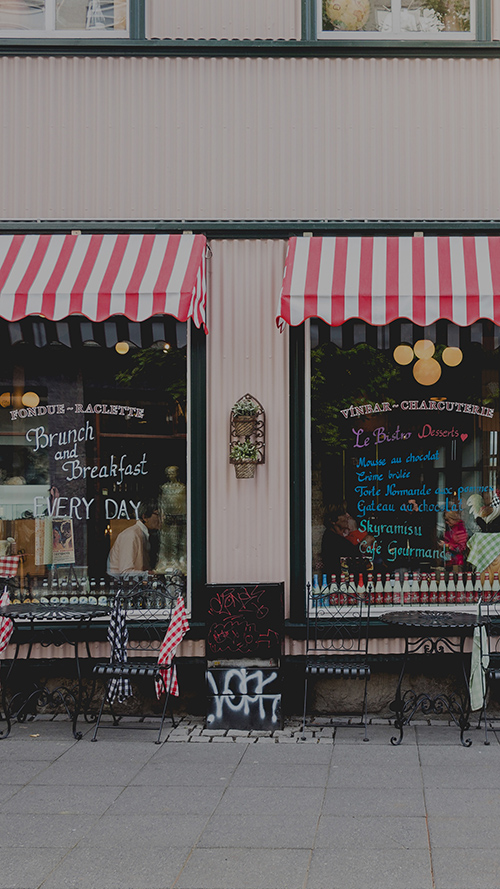 FONDUE~RACLETTE
Brunch
and
Breakfast
EVERY DAY
VÍNBAR~CHARCUTERIE
Le Bistro Desserts
Mousse au chocolat
Crème brûlée
Torte Normande aux pommes
Gateau au chocolat
Skyramisu
Café Gourmand